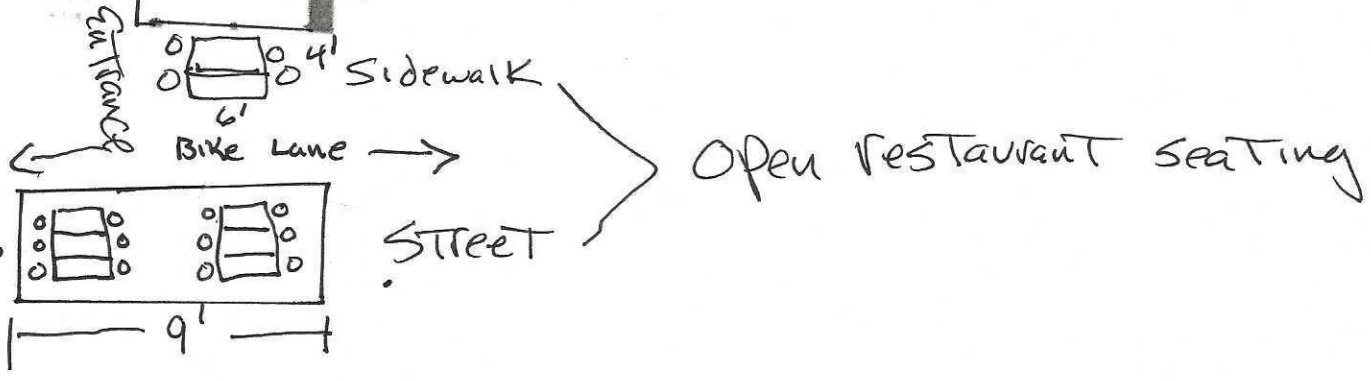 Entrance
4'
Sidewalk
6'
Bike Lane
Open restaurant seating
Street
9'